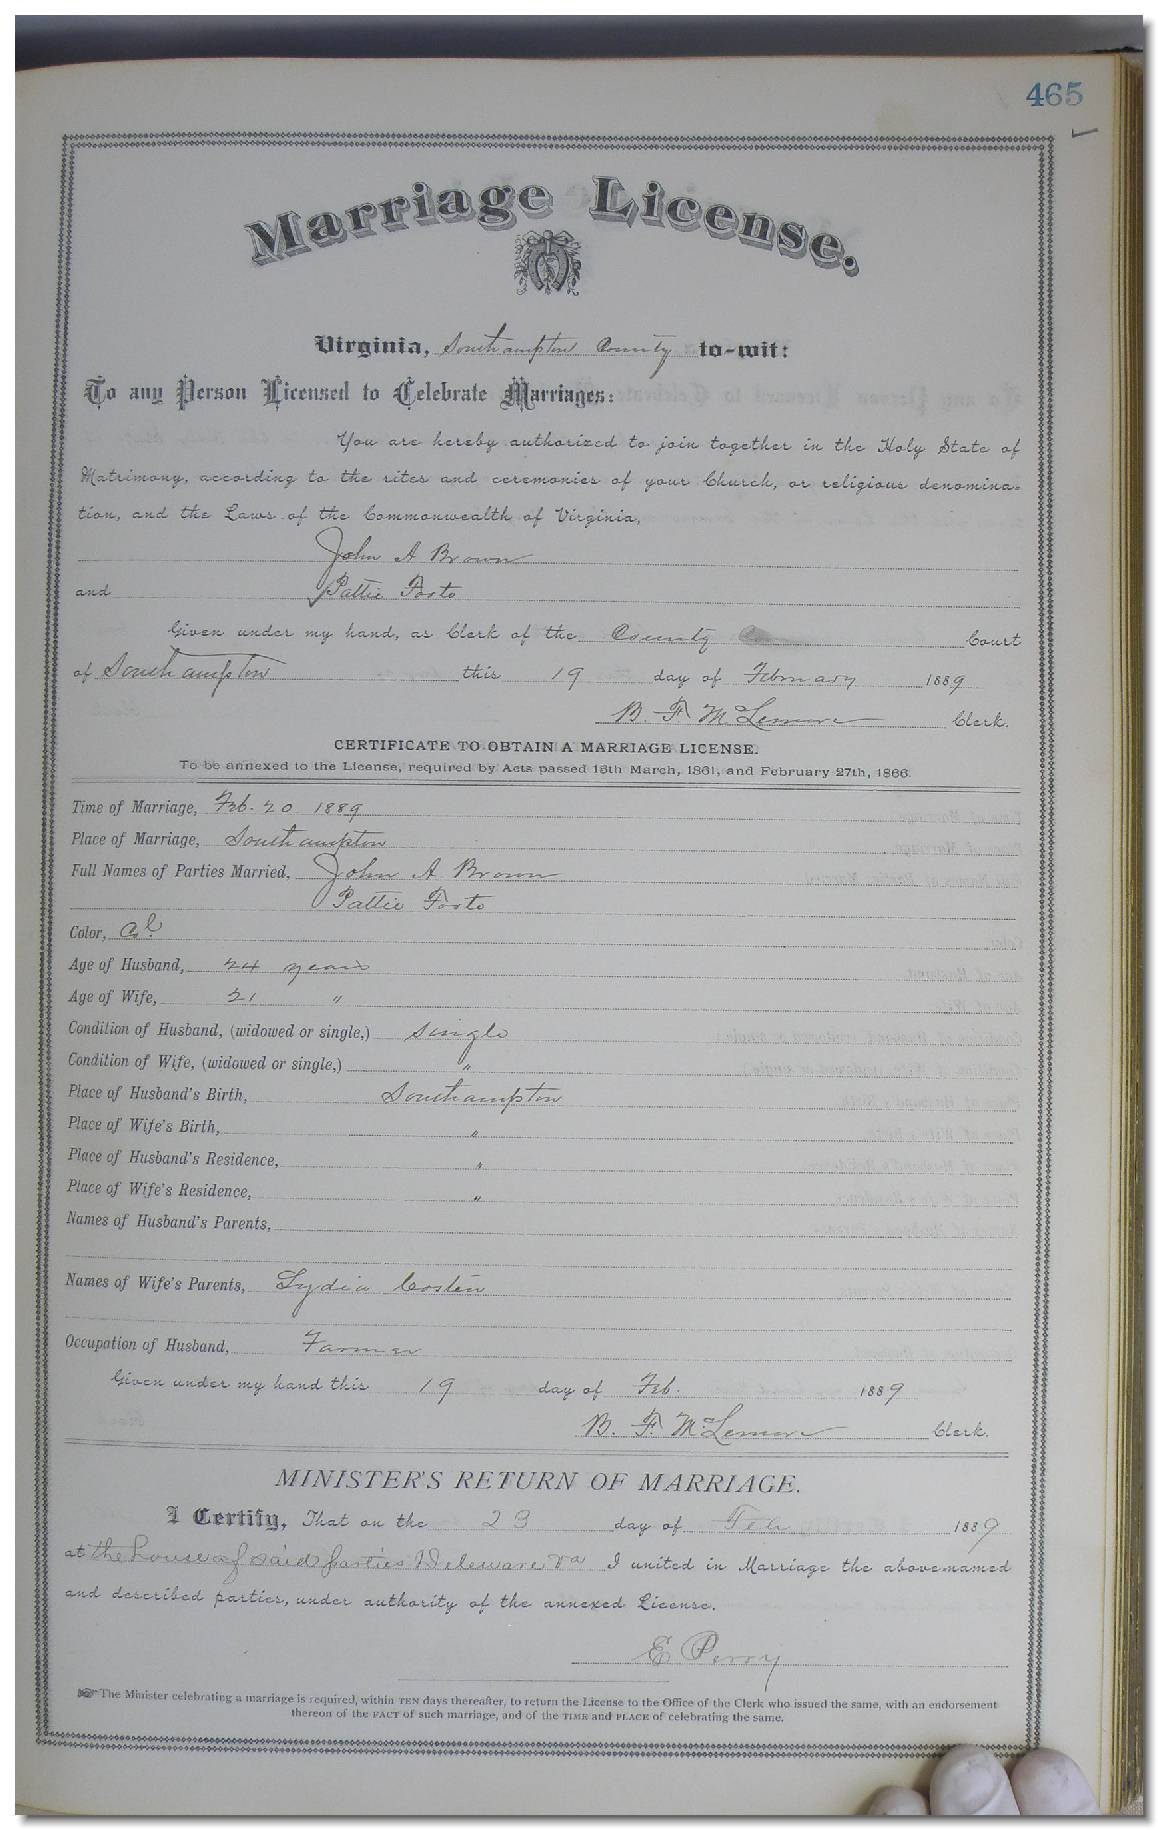 465
Marriage License.
Virginia, Southampton County to-wit:
To any Person Licensed to Celebrate Marriages:
You are hereby authorized to join together in the Holy State of
Matrimony, according to the rites and ceremonies of your Church, or religious denomina-
tion, and the Laws of the Commonwealth of Virginia,
John A Brown
and Pattie Forto
Given under my hand, as Clerk of the County Court
of Southampton this 19 day of February 1889
B. F. McLemore Clerk.
CERTIFICATE TO OBTAIN A MARRIAGE LICENSE.
To be annexed to the License, required by Acts passed 16th March, 1861, and February 27th, 1866.
Time of Marriage, Feb. 20 1889
Place of Marriage, Southampton
Full Names of Parties Married, John A Brown
Pattie Forto
Color, Col.
Age of Husband, 24 years
Age of Wife, 21 "
Condition of Husband, (widowed or single,) single
Condition of Wife, (widowed or single,) "
Place of Husband's Birth, Southampton
Place of Wife's Birth, "
Place of Husband's Residence, "
Place of Wife's Residence, "
Names of Husband's Parents,
Names of Wife's Parents, Lydia Costen
Occupation of Husband, Farmer
Given under my hand this 19 day of Feb. 1889
B. F. McLemore Clerk.
MINISTER'S RETURN OF MARRIAGE.
I Certify, That on the 23 day of Feb 1889
at the house of said parties Deleware Va I united in Marriage the above-named
and described parties, under authority of the annexed License.
E Perry
The Minister celebrating a marriage is required, within TEN days thereafter, to return the License to the Office of the Clerk who issued the same, with an endorsement
thereon of the FACT of such marriage, and of the TIME and PLACE of celebrating the same.